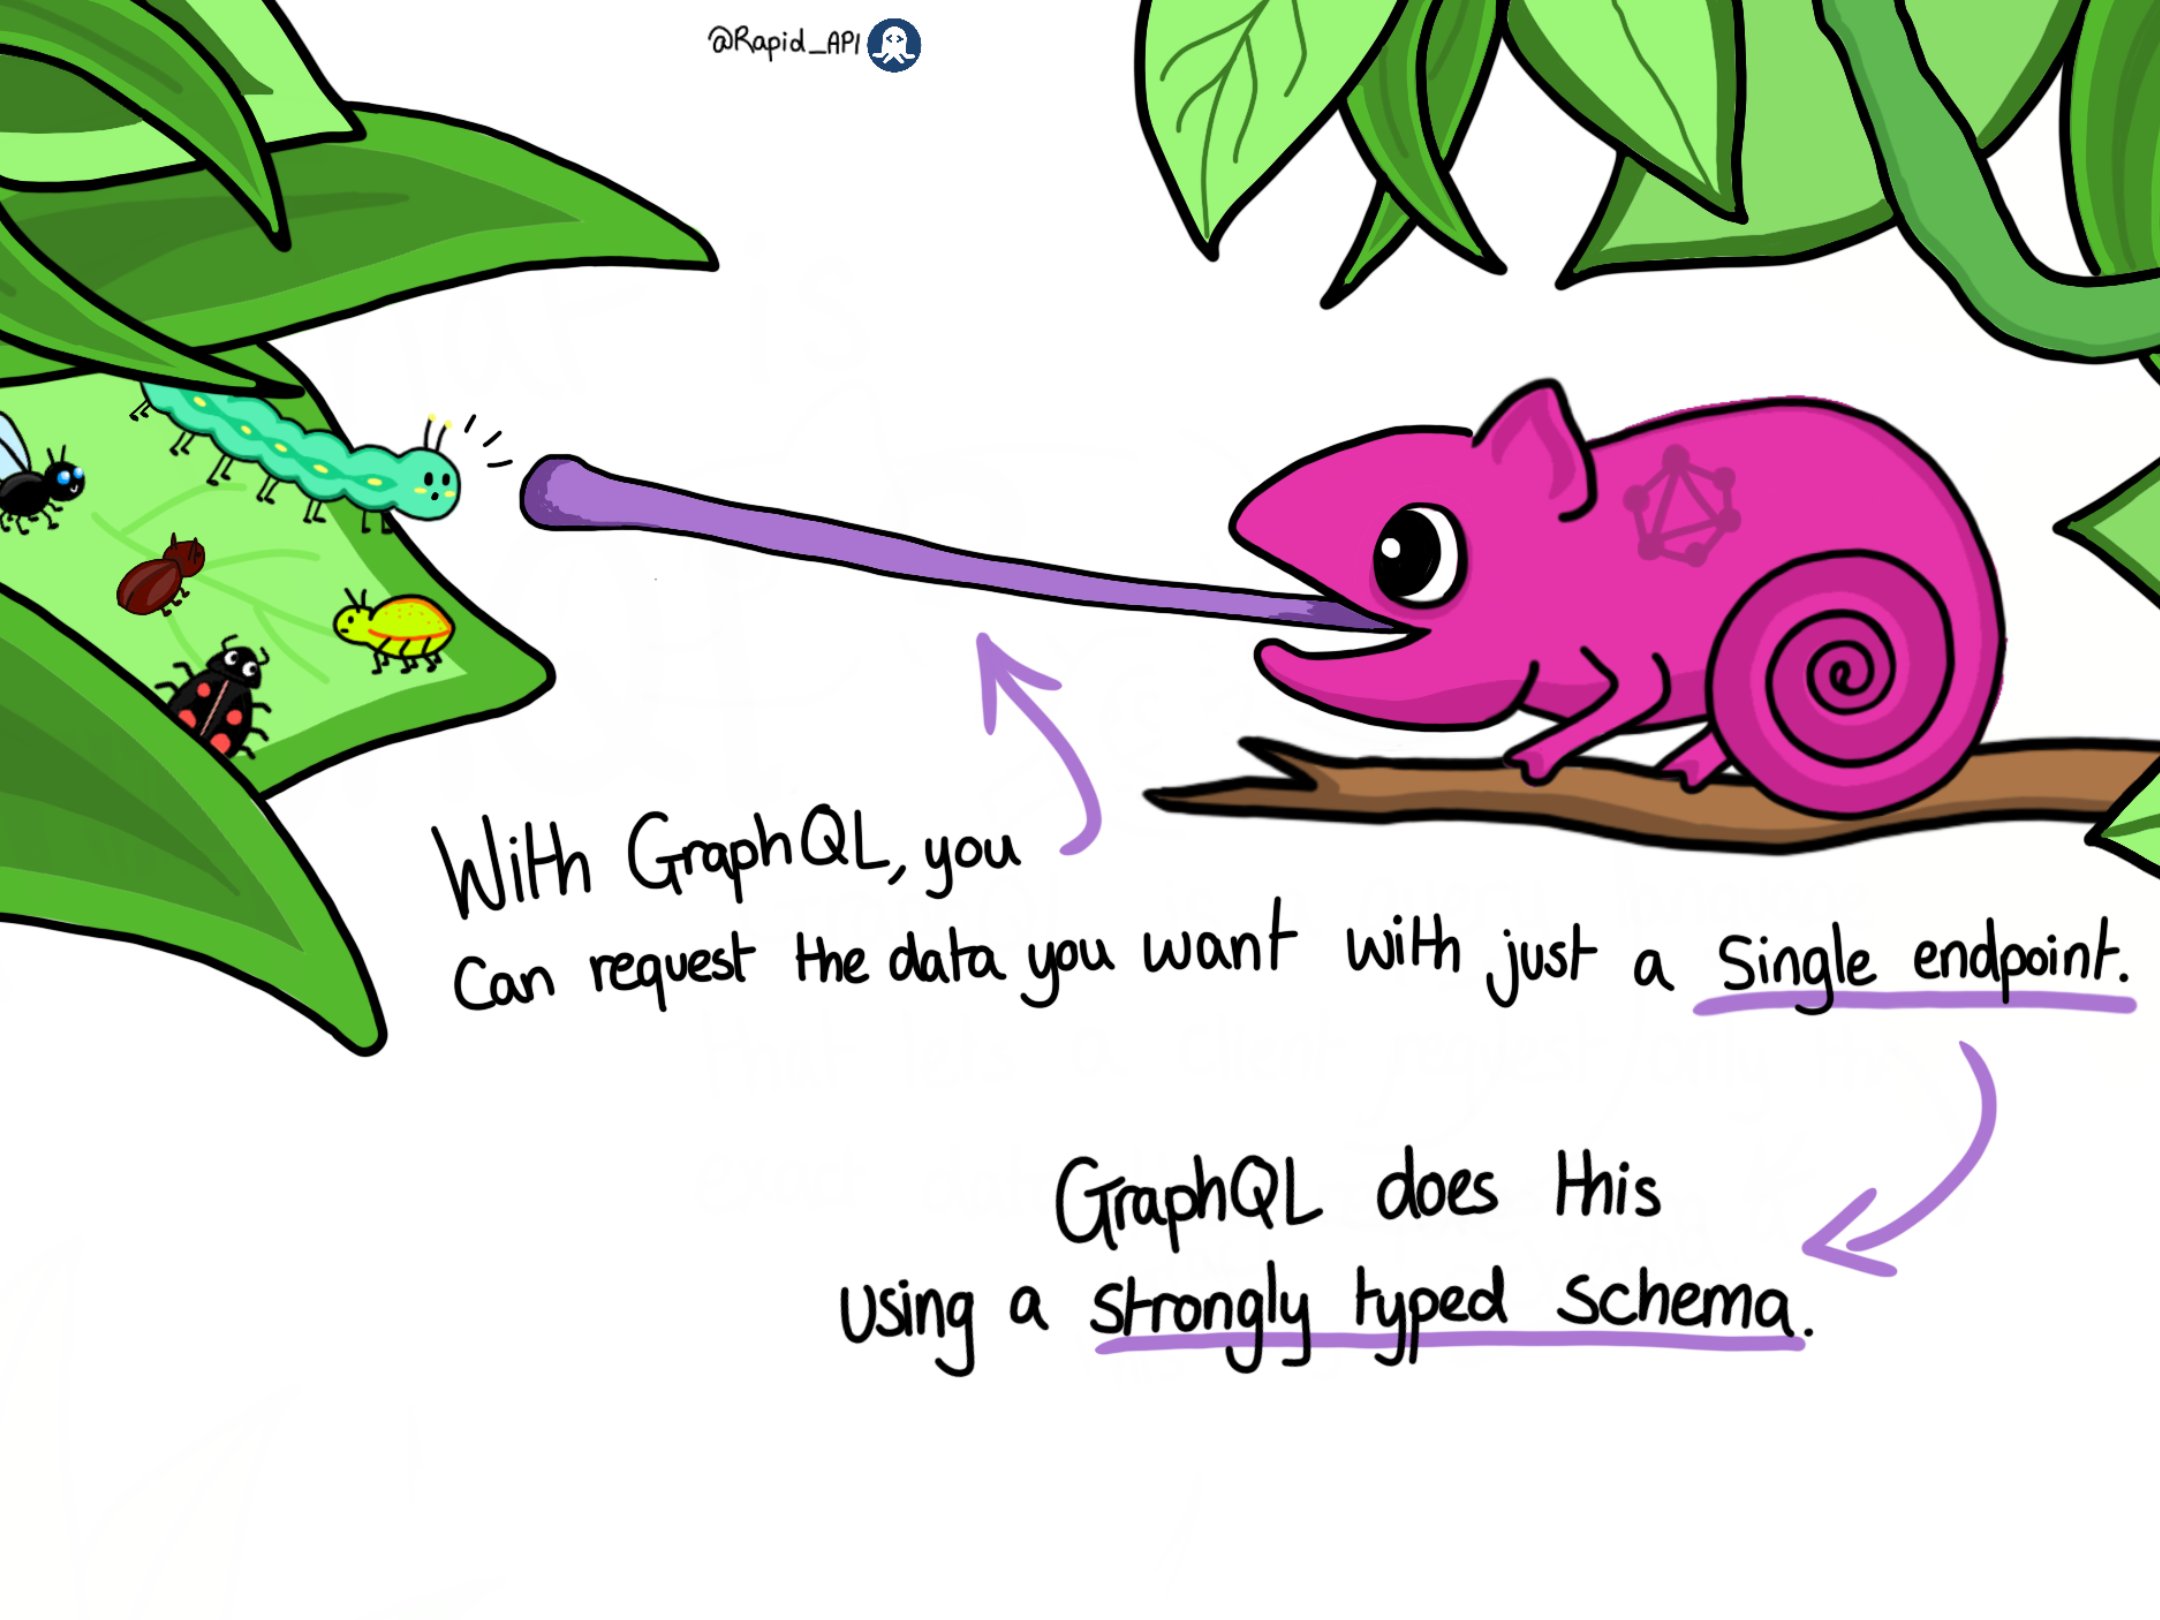 @Rapid_API
With GraphQL, you
can request the data you want with just a single endpoint.
GraphQL does this
using a strongly typed schema.